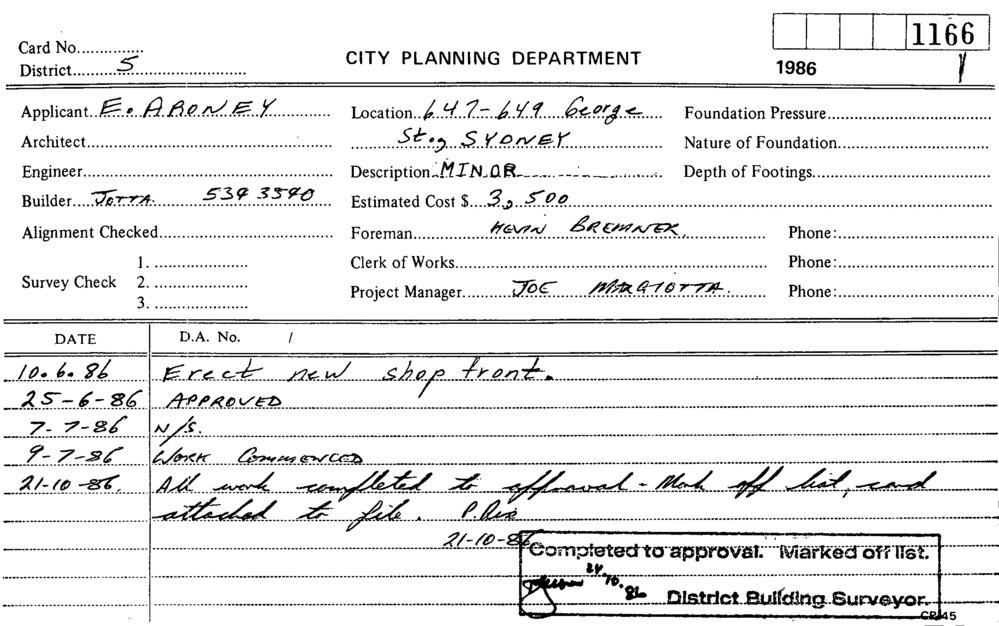 1166
Card No.
CITY PLANNING DEPARTMENT
1986
District 5
Applicant E. ARONEY
Location 647-649 George
Foundation Pressure
Architect
St., SYDNEY
Nature of Foundation
Engineer
Description MINOR
Depth of Footings
Builder JOTTA. 534 3540
Estimated Cost $ 3,500
Alignment Checked
Foreman KEVIN BREMNER.
Phone:
1.
Clerk of Works
Phone:
Survey Check 2.
Project Manager JOE MARGIOTTA.
Phone:
3.
DATE
D.A. No. /
10.6.86 Erect new shop front.
25-6-86 APPROVED
7-7-86 N/S.
9-7-86 WORK COMMENCED
21-10-86. All work completed to approval - Mark off list, card
attached to file. P.
21-10-86
Completed to approval. Marked off list.
21.10.86
District Building Surveyor.
CP 45